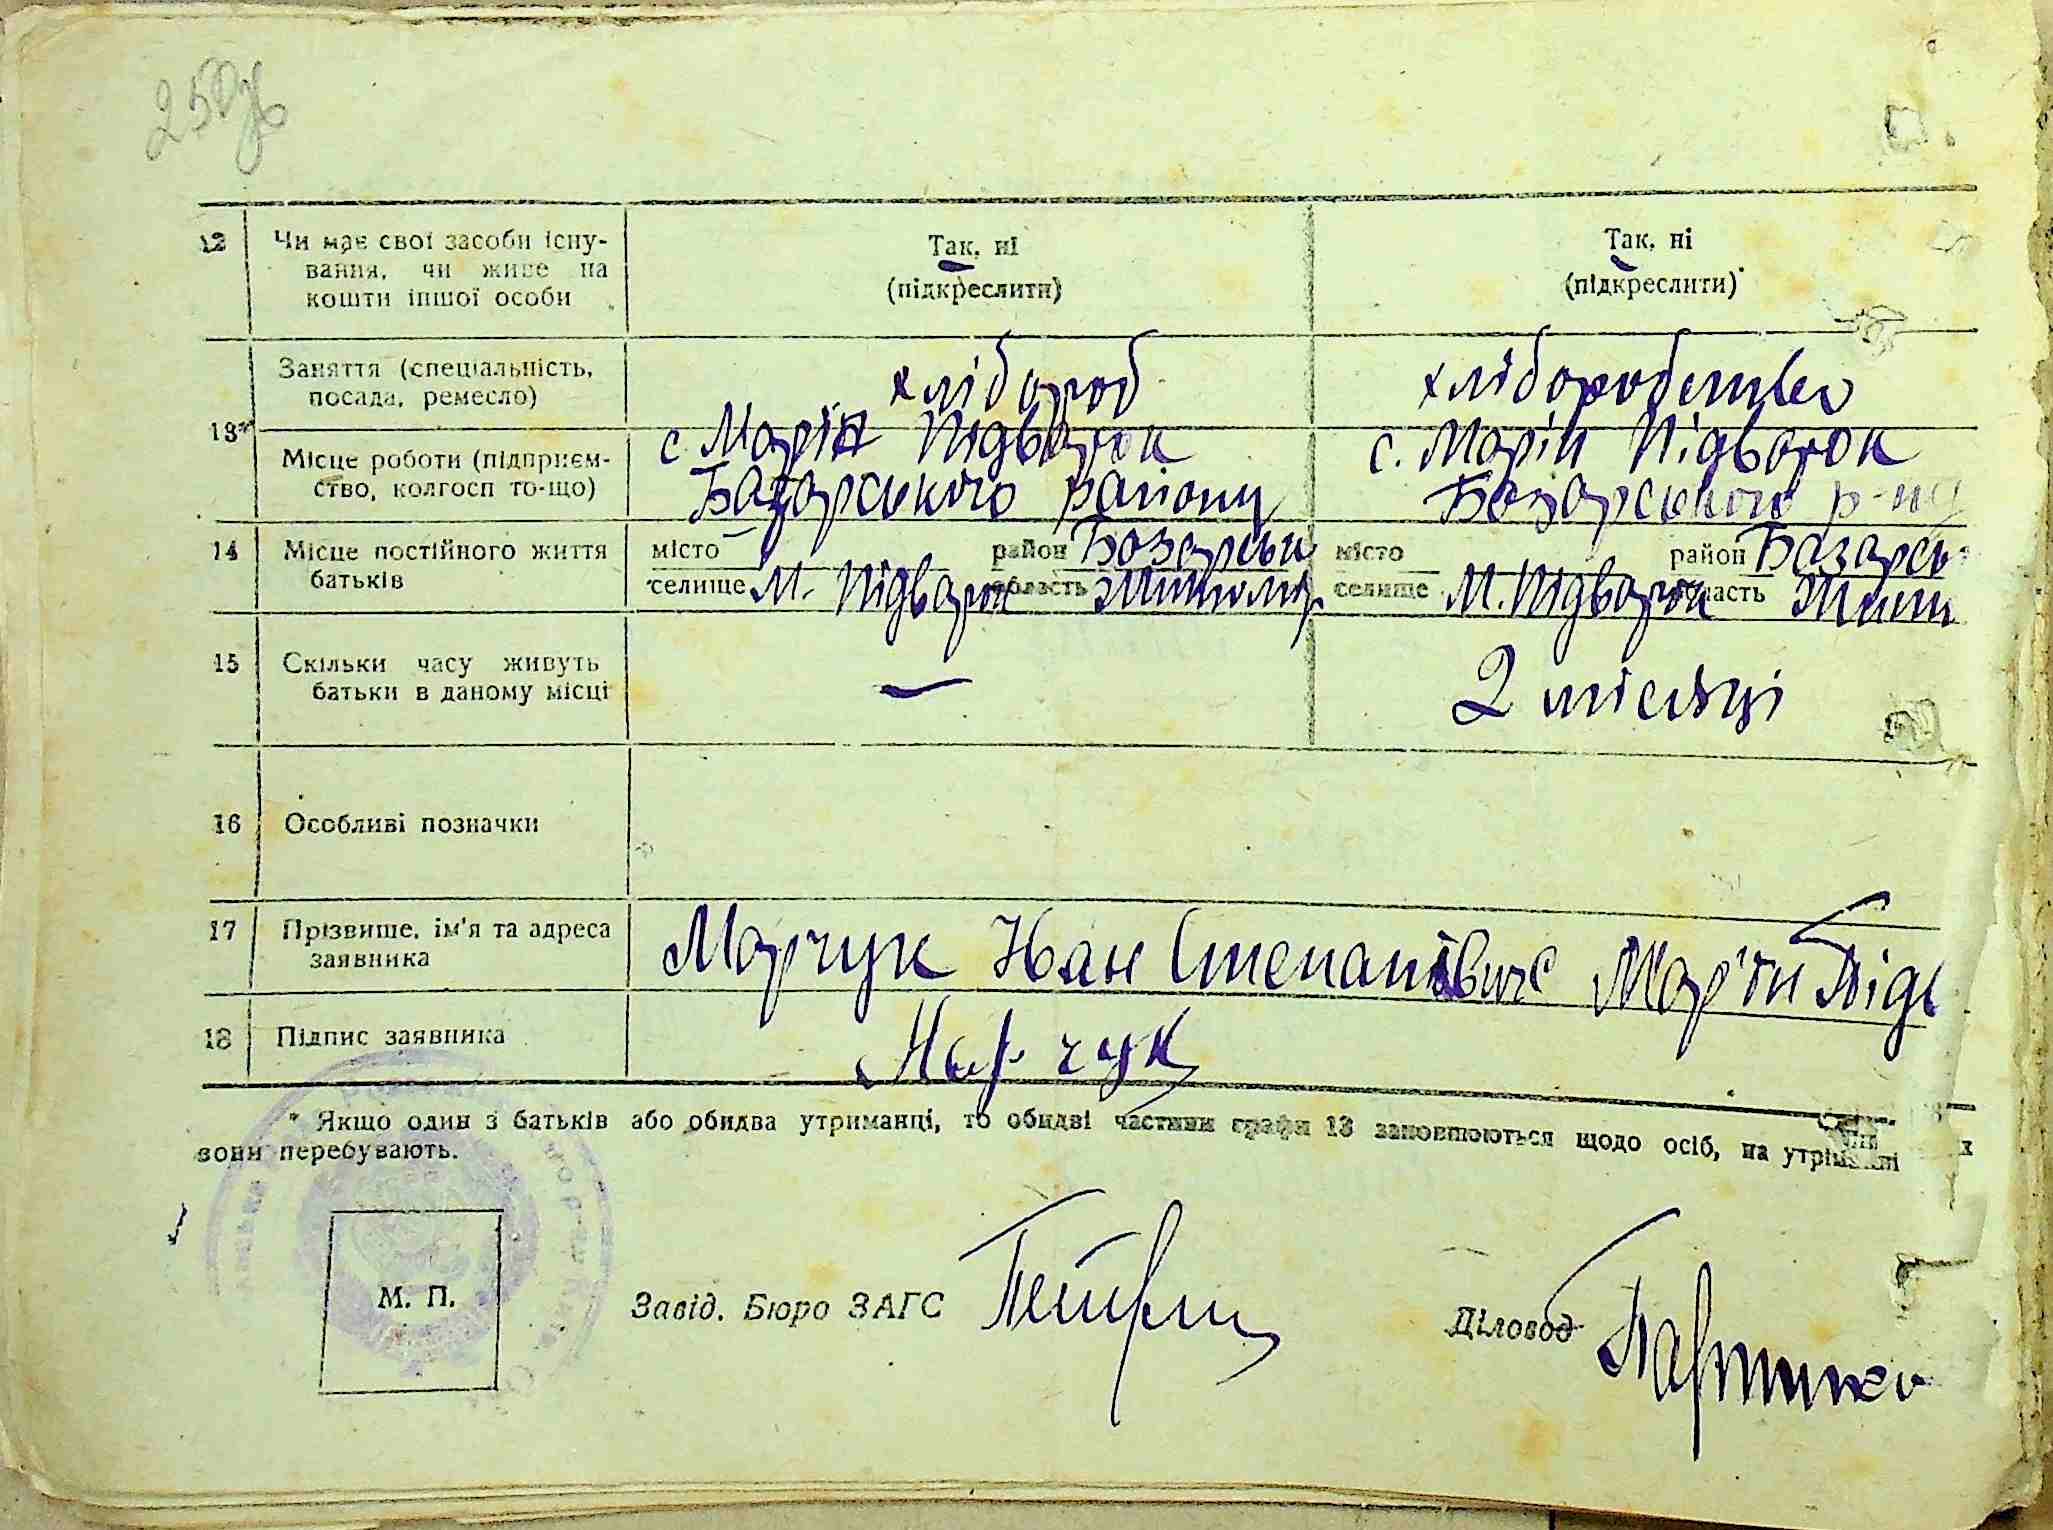 250зв
12 Чи має свої засоби існу-
вання, чи живе на
кошти іншої особи
Так, ні
(підкреслити)
Так, ні
(підкреслити)
13* Заняття (спеціальність,
посада, ремесло)
хлібороб
хліборобство
Місце роботи (підприєм-
ство, колгосп то-що)
с. Марін Підварок
Базарського району
с. Марін Підварок
Базарського р-ну
14 Місце постійного життя
батьків
місто район Базарськ
селище М. Підварок область Житомир
місто район Базарсь
селище М. Підварок область Жит
15 Скільки часу живуть
батьки в даному місці
—
2 місяці
16 Особливі позначки
17 Прізвище, ім'я та адреса
заявника
Марчук Іван Степанович Мар'їн Підв
18 Підпис заявника
Марчук
* Якщо один з батьків або обидва утриманці, то обидві частини графи 13 заповнюються щодо осіб, на утриманні
вони перебувають.
М. П.
Завід. Бюро ЗАГС
Діловод